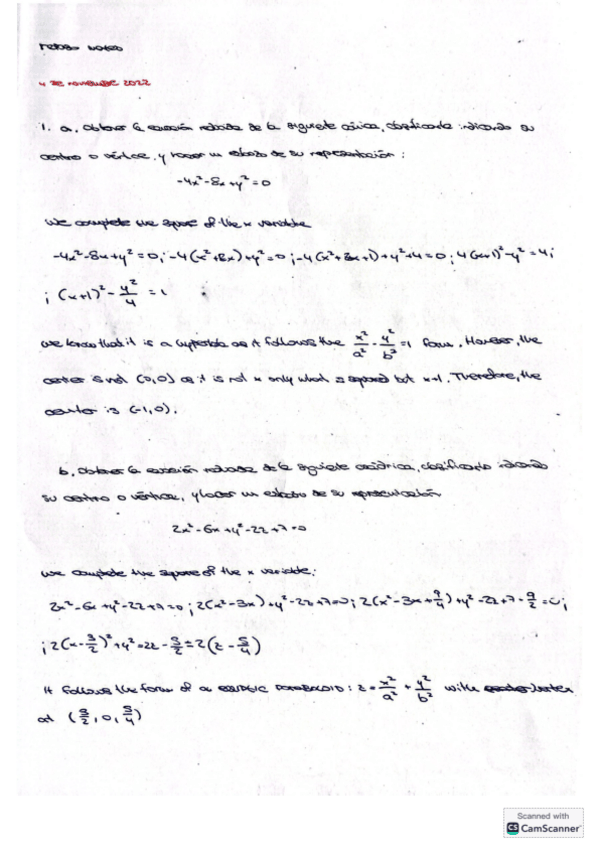 4 DE NOVIEMBRE 2022
1. a. Obtener la ecuación reducida de la siguiente cónica, clasificarla indicando su
centro o vértice, y hacer un esbozo de su representación:
-4x²-8x+y²=0
We complete the square of the x variable
-4x²-8x+y²=0; -4(x²+2x)+y²=0; -4(x²+2x+1)+y²+4=0; 4(x+1)²-y²=4;
; (x+1)² - y²/4 = 1
We know that it is a hyperbola as it follows the x²/a² - y²/b² = 1 form. However, the
center is not (0,0) as it is not x only what is squared but x+1. Therefore, the
center is (-1,0).
b. Obtener la ecuación reducida de la siguiente cuádrica, clasificarla indicando
su centro o vértice, y hacer un esbozo de su representación
2x²-6x+y²-2z+7=0
We complete the square of the x variable:
2x²-6x+y²-2z+7=0; 2(x²-3x)+y²-2z+7=0; 2(x²-3x+9/4)+y²-2z+7-9/2=0;
; 2(x-3/2)²+y²=2z-5/2=2(z-5/4)
It follows the form of a elliptic paraboloid: z = x²/a² + y²/b² with vertex
at (3/2, 0, 5/4)
Scanned with
CS CamScanner